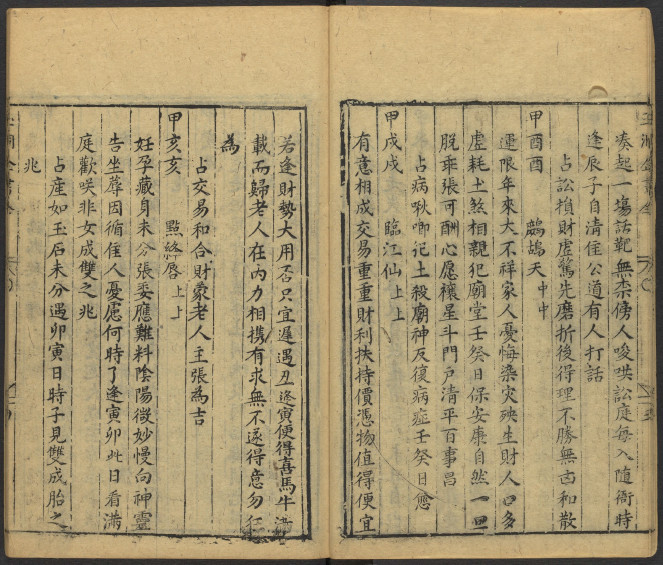 湊起一塲話靶無柰傍人唆哄訟庭每入随衙時
逢辰子自清佳公道有人打話
占訟損財虚驚先磨折後得理不勝無卤和散
甲酉酉 鷓鴣天中中
運限年來大不祥家人憂悔染灾殃生財人口多
虚耗土煞相親犯廟堂壬癸日保安康自然一旦
脱乖張可酬心愿禳星斗門戸清平百事昌
占病啾唧記土殺廟神反復病症壬癸日愈
甲戌戌 臨江仙上上
有意相成交易重重財利扶持價憑物值得便宜
若逢財勢大用否只宜遲遇丑逢寅便得喜馬牛满
載而歸老人在内力相携有求無不遂得意勿狂
為
占交易和合財豪老人王張為吉
甲亥亥 點絳唇上上
妊孕藏身未分張娄應難料陰陽微妙慢向神靈
告坐蓐因循佳人憂慮何時了逢寅卯此日看满
庭歡咲非女成雙之兆
占產如玉石未分遇卯寅日時子見雙成胎之
兆